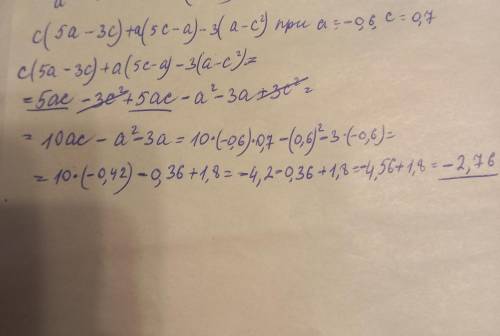 c(5a-3c)+a(5c-a)-3(a-c²) при a=-0,6, c=0,7
c(5a-3c)+a(5c-a)-3(a-c²)=
=5ac-3c²+5ac-a²-3a+3c²=
=10ac-a²-3a=10·(-0,6)·0,7-(0,6)²-3·(-0,6)=
=10·(-0,42)-0,36+1,8=-4,2-0,36+1,8=-4,56+1,8=-2,76